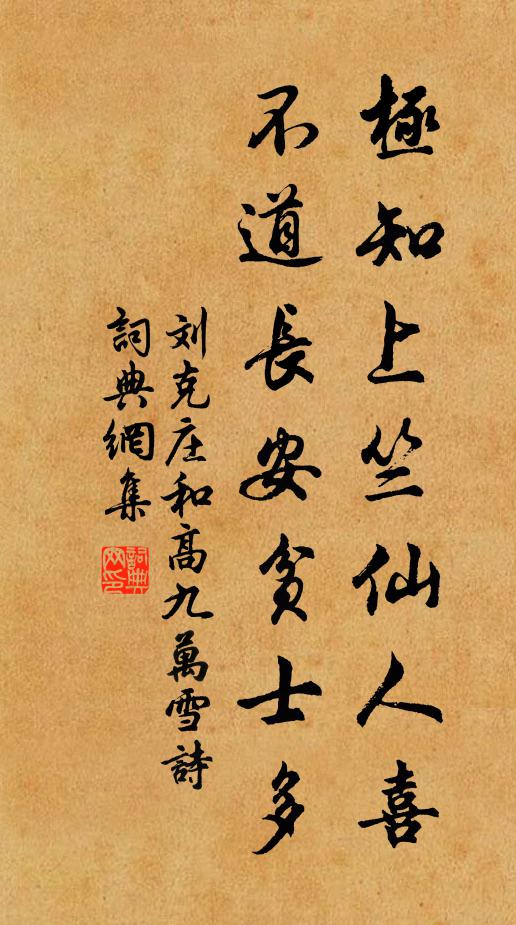 極知上竺仙人喜
不道長安貧士多
刘克庄和高九萬雪詩
詞典網集
詞典网印